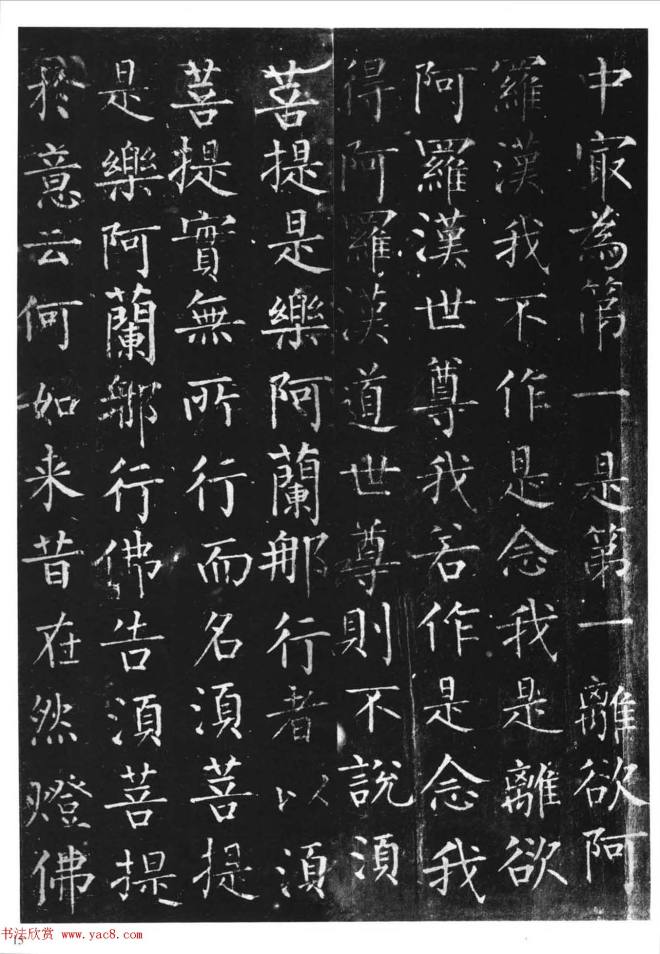 中冣為第一是第一離欲阿
羅漢我不作是念我是離欲
阿羅漢世尊我若作是念我
得阿羅漢道世尊則不說湏
菩提是樂阿蘭那行者以湏
菩提實無所行而名湏菩提
是樂阿蘭那行佛告湏菩提
扵意云何如来昔在然燈佛
书法欣赏 www.yac8.com
15